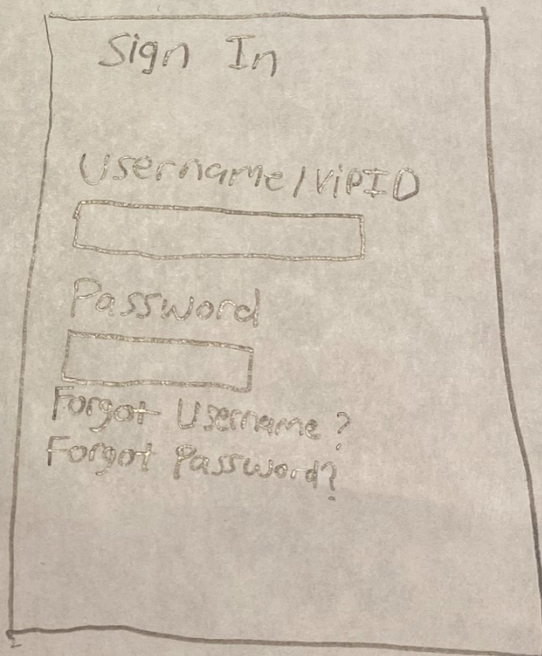 Sign In
Username/VipID
Password
Forgot Username?
Forgot Password?